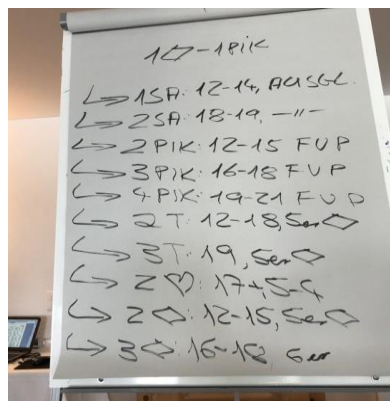 1♢-1PIK
↳ 1SA: 12-14, AUSGL.
↳ 2SA: 18-19, -"-
↳ 2PIK: 12-15 FUP
↳ 3PIK: 16-18 FUP
↳ 4PIK: 19-21 FUP
↳ 2T: 12-18, 5er♢
↳ 3T: 19, 5er♢
↳ 2♡: 17+, 5-4
↳ 2♢: 12-15, 5er♢
↳ 3♢: 16-18 6er